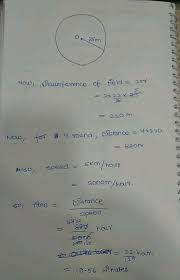 O 35m
Now, Circumference of field = 2πr
= 2×22/7×35
= 220m
Now, for 4 round, Distance = 4×220
= 880m
Also, speed = 5km/hour
= 5000m/hour
So, Time = Distance
Speed
hour
= 22 hour
= 10.56 Minutes